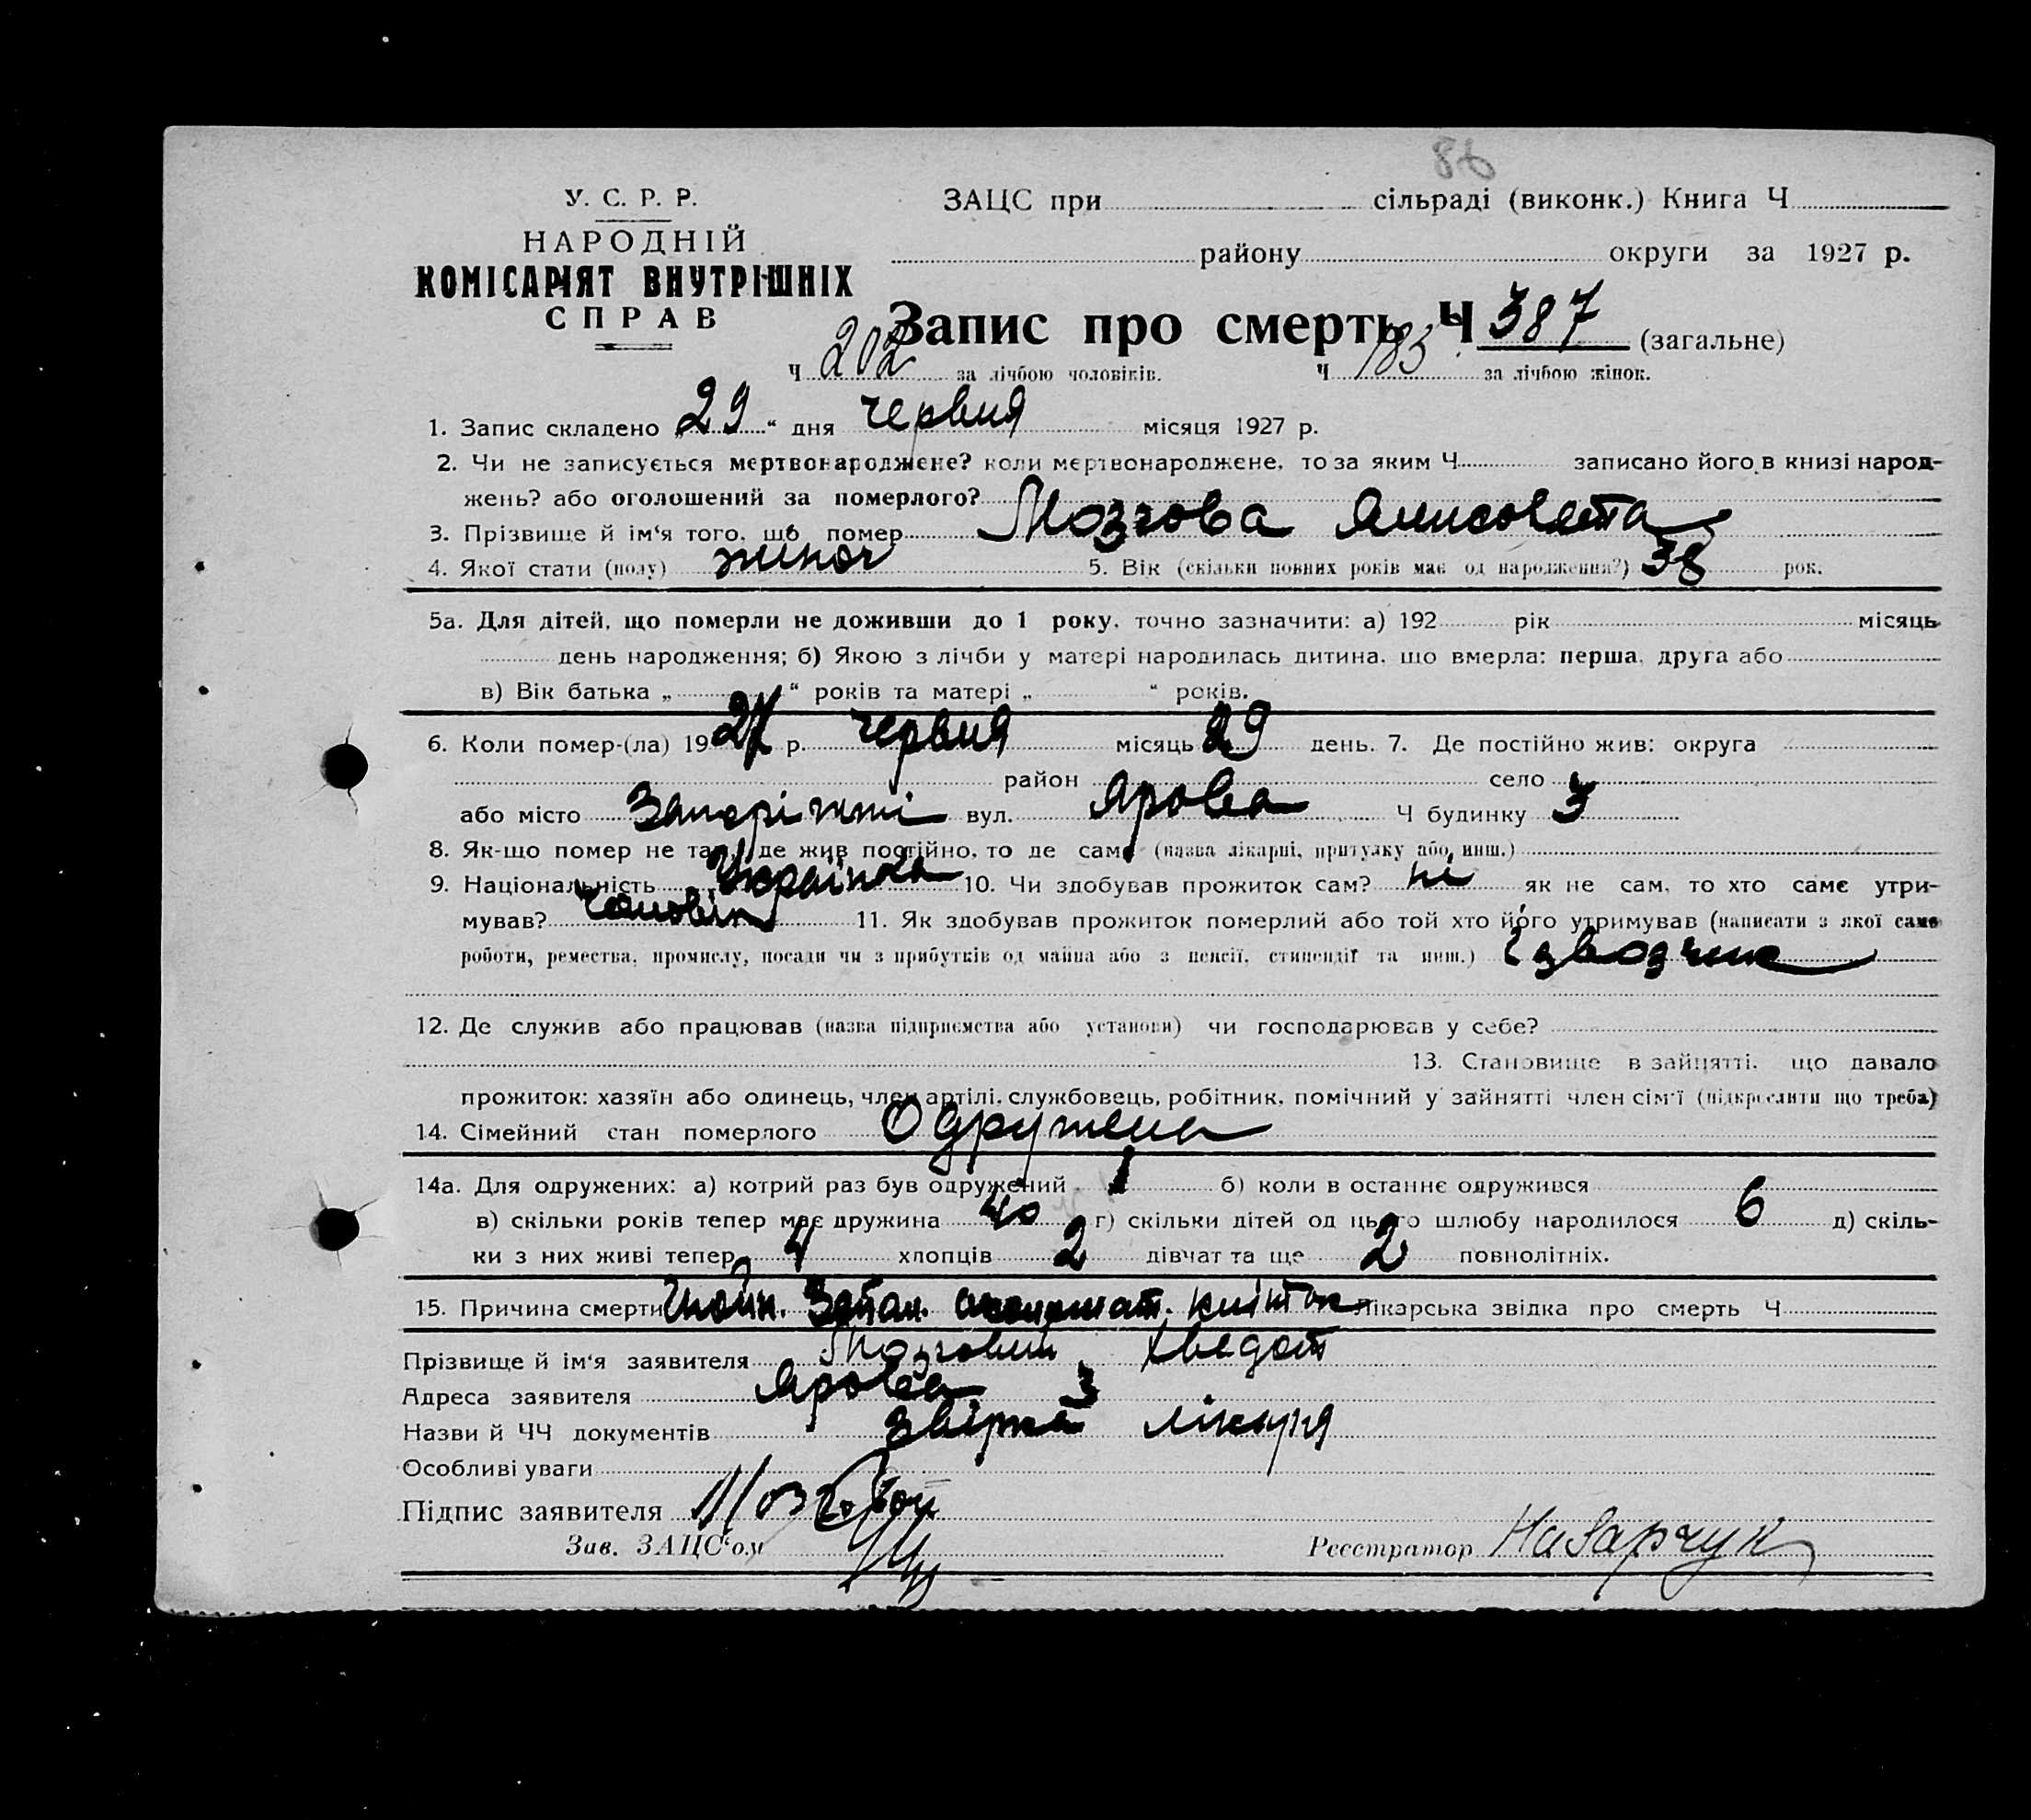 86
У. С. Р. Р.
НАРОДНІЙ
КОМІСАРІЯТ ВНУТРІШНІХ
СПРАВ
ЗАЦС при сільраді (виконк.) Книга Ч
району округи за 1927 р.
Запис про смерть Ч 387 (загальне)
Ч 202 за лічбою чоловіків. Ч 185 за лічбою жінок.
1. Запис складено „29“ дня червня місяця 1927 р.
2. Чи не записується мертвонароджене? коли мертвонароджене, то за яким Ч записано його в книзі народ-
жень? або оголошений за померлого?
3. Прізвище й ім‘я того, що помер Мозгова Ялисовета
4. Якої стати (полу) жіноч 5. Вік (скільки повних років має од народження?) 38 рок.
5а. Для дітей, що померли не доживши до 1 року, точно зазначити: а) 192 рік місяць
день народження; б) Якою з лічби у матері народилась дитина, що вмерла: перша, друга або
в) Вік батька „ “ років та матері „ “ років.
6. Коли помер-(ла) 1927 р. червня місяць 29 день. 7. Де постійно жив: округа
район село
або місто Запоріжжі вул. Ярова Ч будинку 3
8. Як-що помер не там, де жив постійно, то де саме (назва лікарні, притулку або инш.)
9. Національність Українка 10. Чи здобував прожиток сам? ні як не сам, то хто саме утри-
мував? Чоловік 11. Як здобував прожиток померлий або той хто його утримував (написати з якої саме
роботи, ремества, промислу, посади чи з прибутків од майна або з пенсії, стипендії та инш.) Ізвозчик
12. Де служив або працював (назва підприємства або установи) чи господарював у себе?
13. Становище в зайнятті, що давало
прожиток: хазяїн або одинець, член артілі, службовець, робітник, помічний у зайнятті член сім‘ї (підкреслити що треба)
14. Сімейний стан померлого Одружена
14а. Для одружених: а) котрий раз був одружений 1 б) коли в останнє одружився
в) скільки років тепер має дружина 40 г) скільки дітей од цього шлюбу народилося 6 д) скіль-
ки з них живі тепер 4 хлопців 2 дівчат та ще 2 повнолітніх.
15. Причина смерти Гнойн. Запал. кліток Лікарська звідка про смерть Ч
Прізвище й ім‘я заявителя Мозговий Хведот
Адреса заявителя Ярова 3
Назви й ЧЧ документів Звірка лікаря
Особливі уваги
Підпис заявителя Мозговой
Зав. ЗАЦС‘ом Реєстратор Назарчук